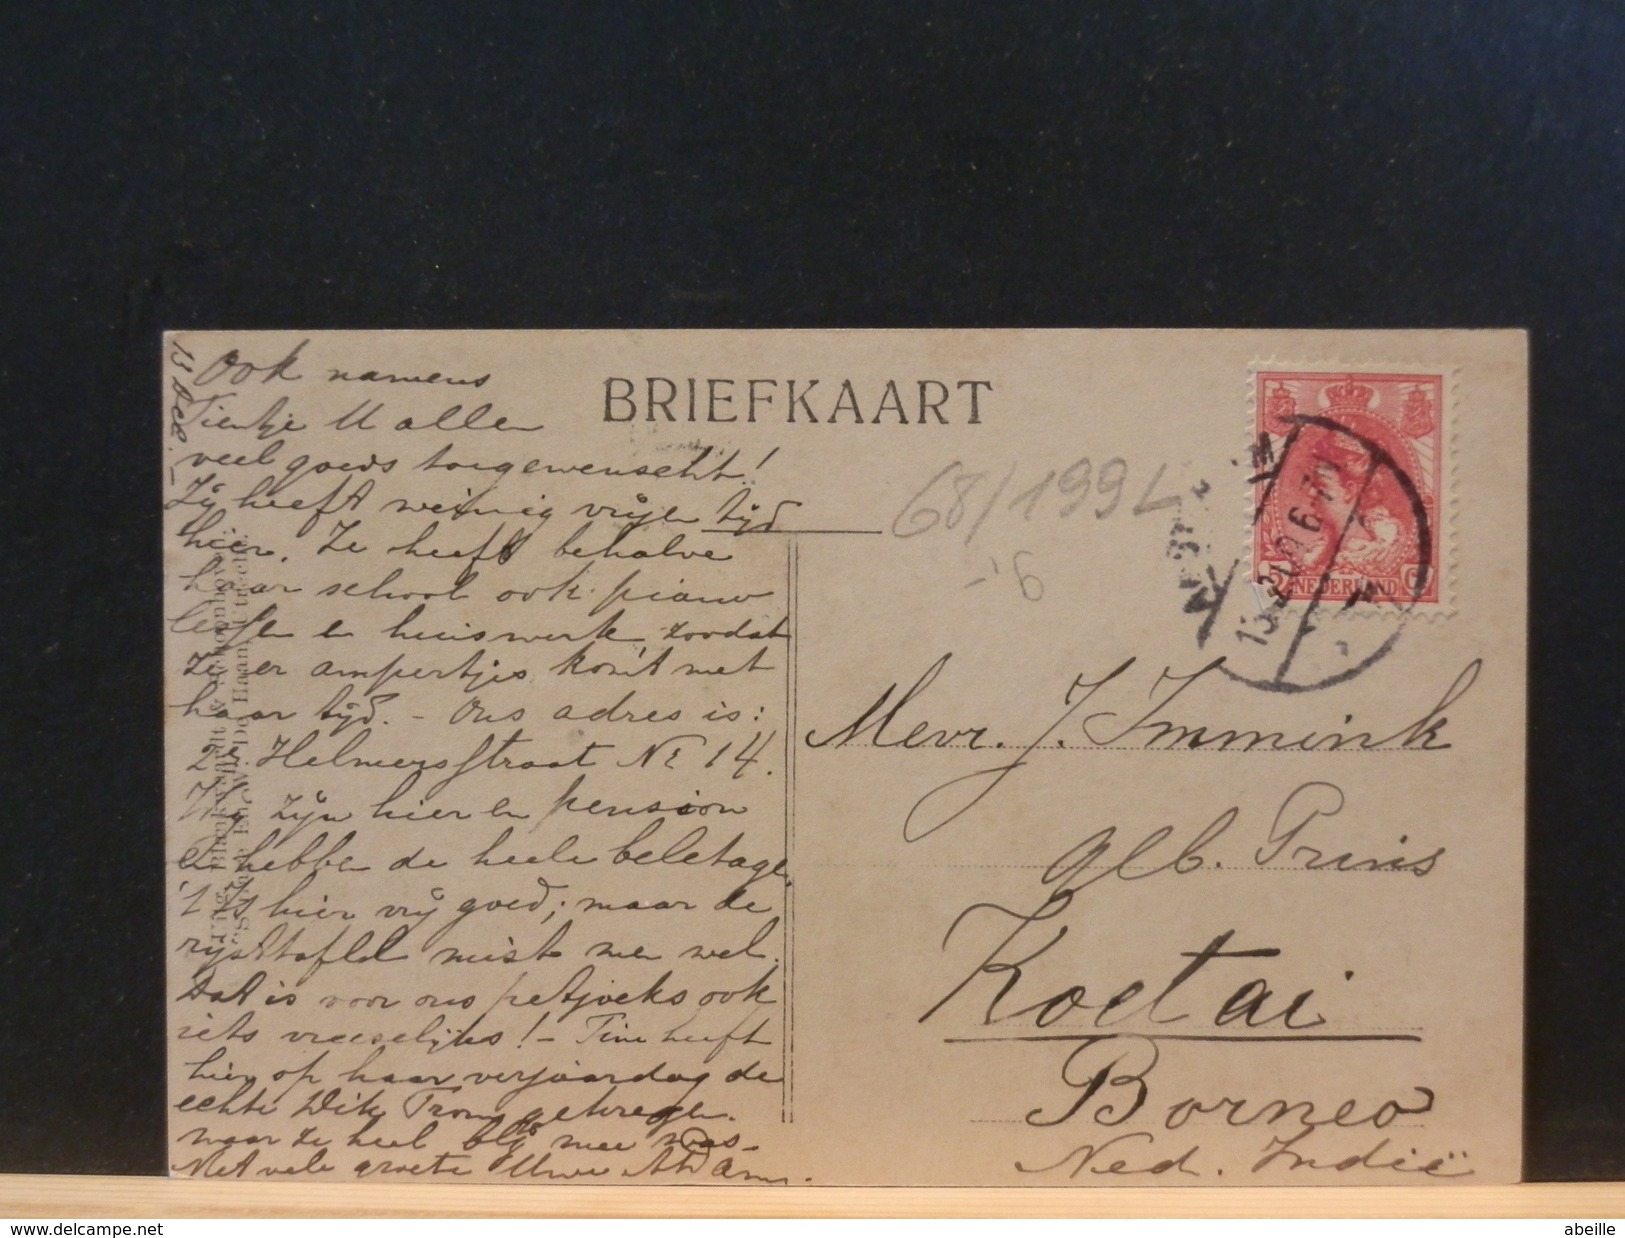 13 Dec.
Ook namens
Tientje U allen
veel goeds toegewenscht!
Zij heeft weinig vrijen tijd
hier. Ze heeft behalve
haar school ook piano
lessen en huiswerk zoodat
ze er ampertjes komt met
haar tijd. - Ons adres is:
2e Helmersstraat No 14.
Wij zijn hier en pension
en hebben de heele beletage.
't Is hier vrij goed; maar de
rijsttafel mist men wel.
Dat is voor ons
ook
iets vreeselijks! - Tine heeft
hier op haar verjaardag de
echte Dik Trom gekregen.
waar ze heel blij mee was.
Met vele groete Uwe
BRIEFKAART
68/1991
-'6
NEDERLAND
Mevr. J. Immink
geb. Prins
Koetai
Borneo
Ned. Indië
abeille
www.delcampe.net